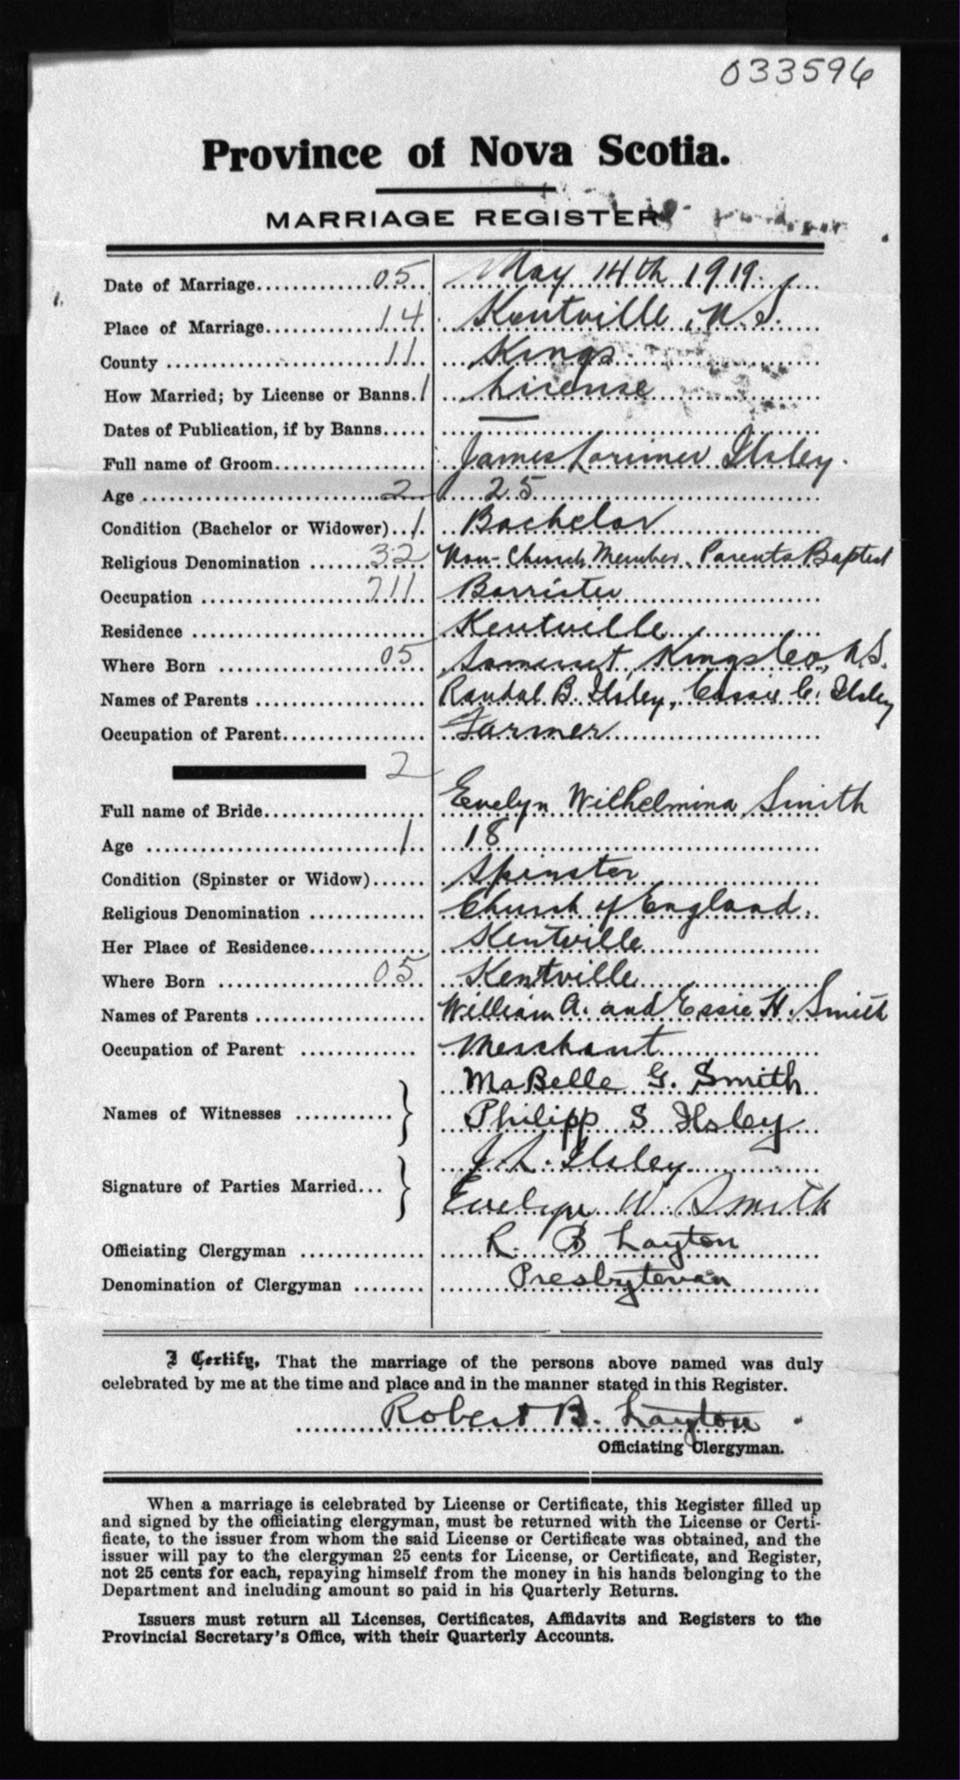 033596
Province of Nova Scotia.
MARRIAGE REGISTER
Date of Marriage 05 May 14th 1919.
Place of Marriage 14 Kentville, N.S.
County 11 Kings
How Married; by License or Banns. 1 License
Dates of Publication, if by Banns —
Full name of Groom James Lorimer Ilsley.
Age 2 25
Condition (Bachelor or Widower) 1 Bachelor
Religious Denomination 32 Non-Church Member. Parents Baptist
Occupation 711 Barrister
Residence Kentville
Where Born 05 Somerset, Kings Co, N.S.
Names of Parents Randal B. Ilsley, Essie C. Ilsley
Occupation of Parent Farmer
2
Full name of Bride Evelyn Wilhelmina Smith
Age 1 18
Condition (Spinster or Widow) Spinster
Religious Denomination Church of England.
Her Place of Residence Kentville
Where Born 05 Kentville
Names of Parents William A. and Essie H. Smith
Occupation of Parent Merchant
MaBelle G. Smith
Names of Witnesses
Philipp S Ilsley
J. L. Ilsley
Signature of Parties Married
Evelyn W. Smith
Officiating Clergyman R. B Layton
Denomination of Clergyman Presbyterian
I Certify, That the marriage of the persons above named was duly
celebrated by me at the time and place and in the manner stated in this Register.
Robert B. Layton
Officiating Clergyman.
When a marriage is celebrated by License or Certificate, this Register filled up
and signed by the officiating clergyman, must be returned with the License or Certi-
ficate, to the issuer from whom the said License or Certificate was obtained, and the
issuer will pay to the clergyman 25 cents for License, or Certificate, and Register,
not 25 cents for each, repaying himself from the money in his hands belonging to the
Department and including amount so paid in his Quarterly Returns.
Issuers must return all Licenses, Certificates, Affidavits and Registers to the
Provincial Secretary's Office, with their Quarterly Accounts.